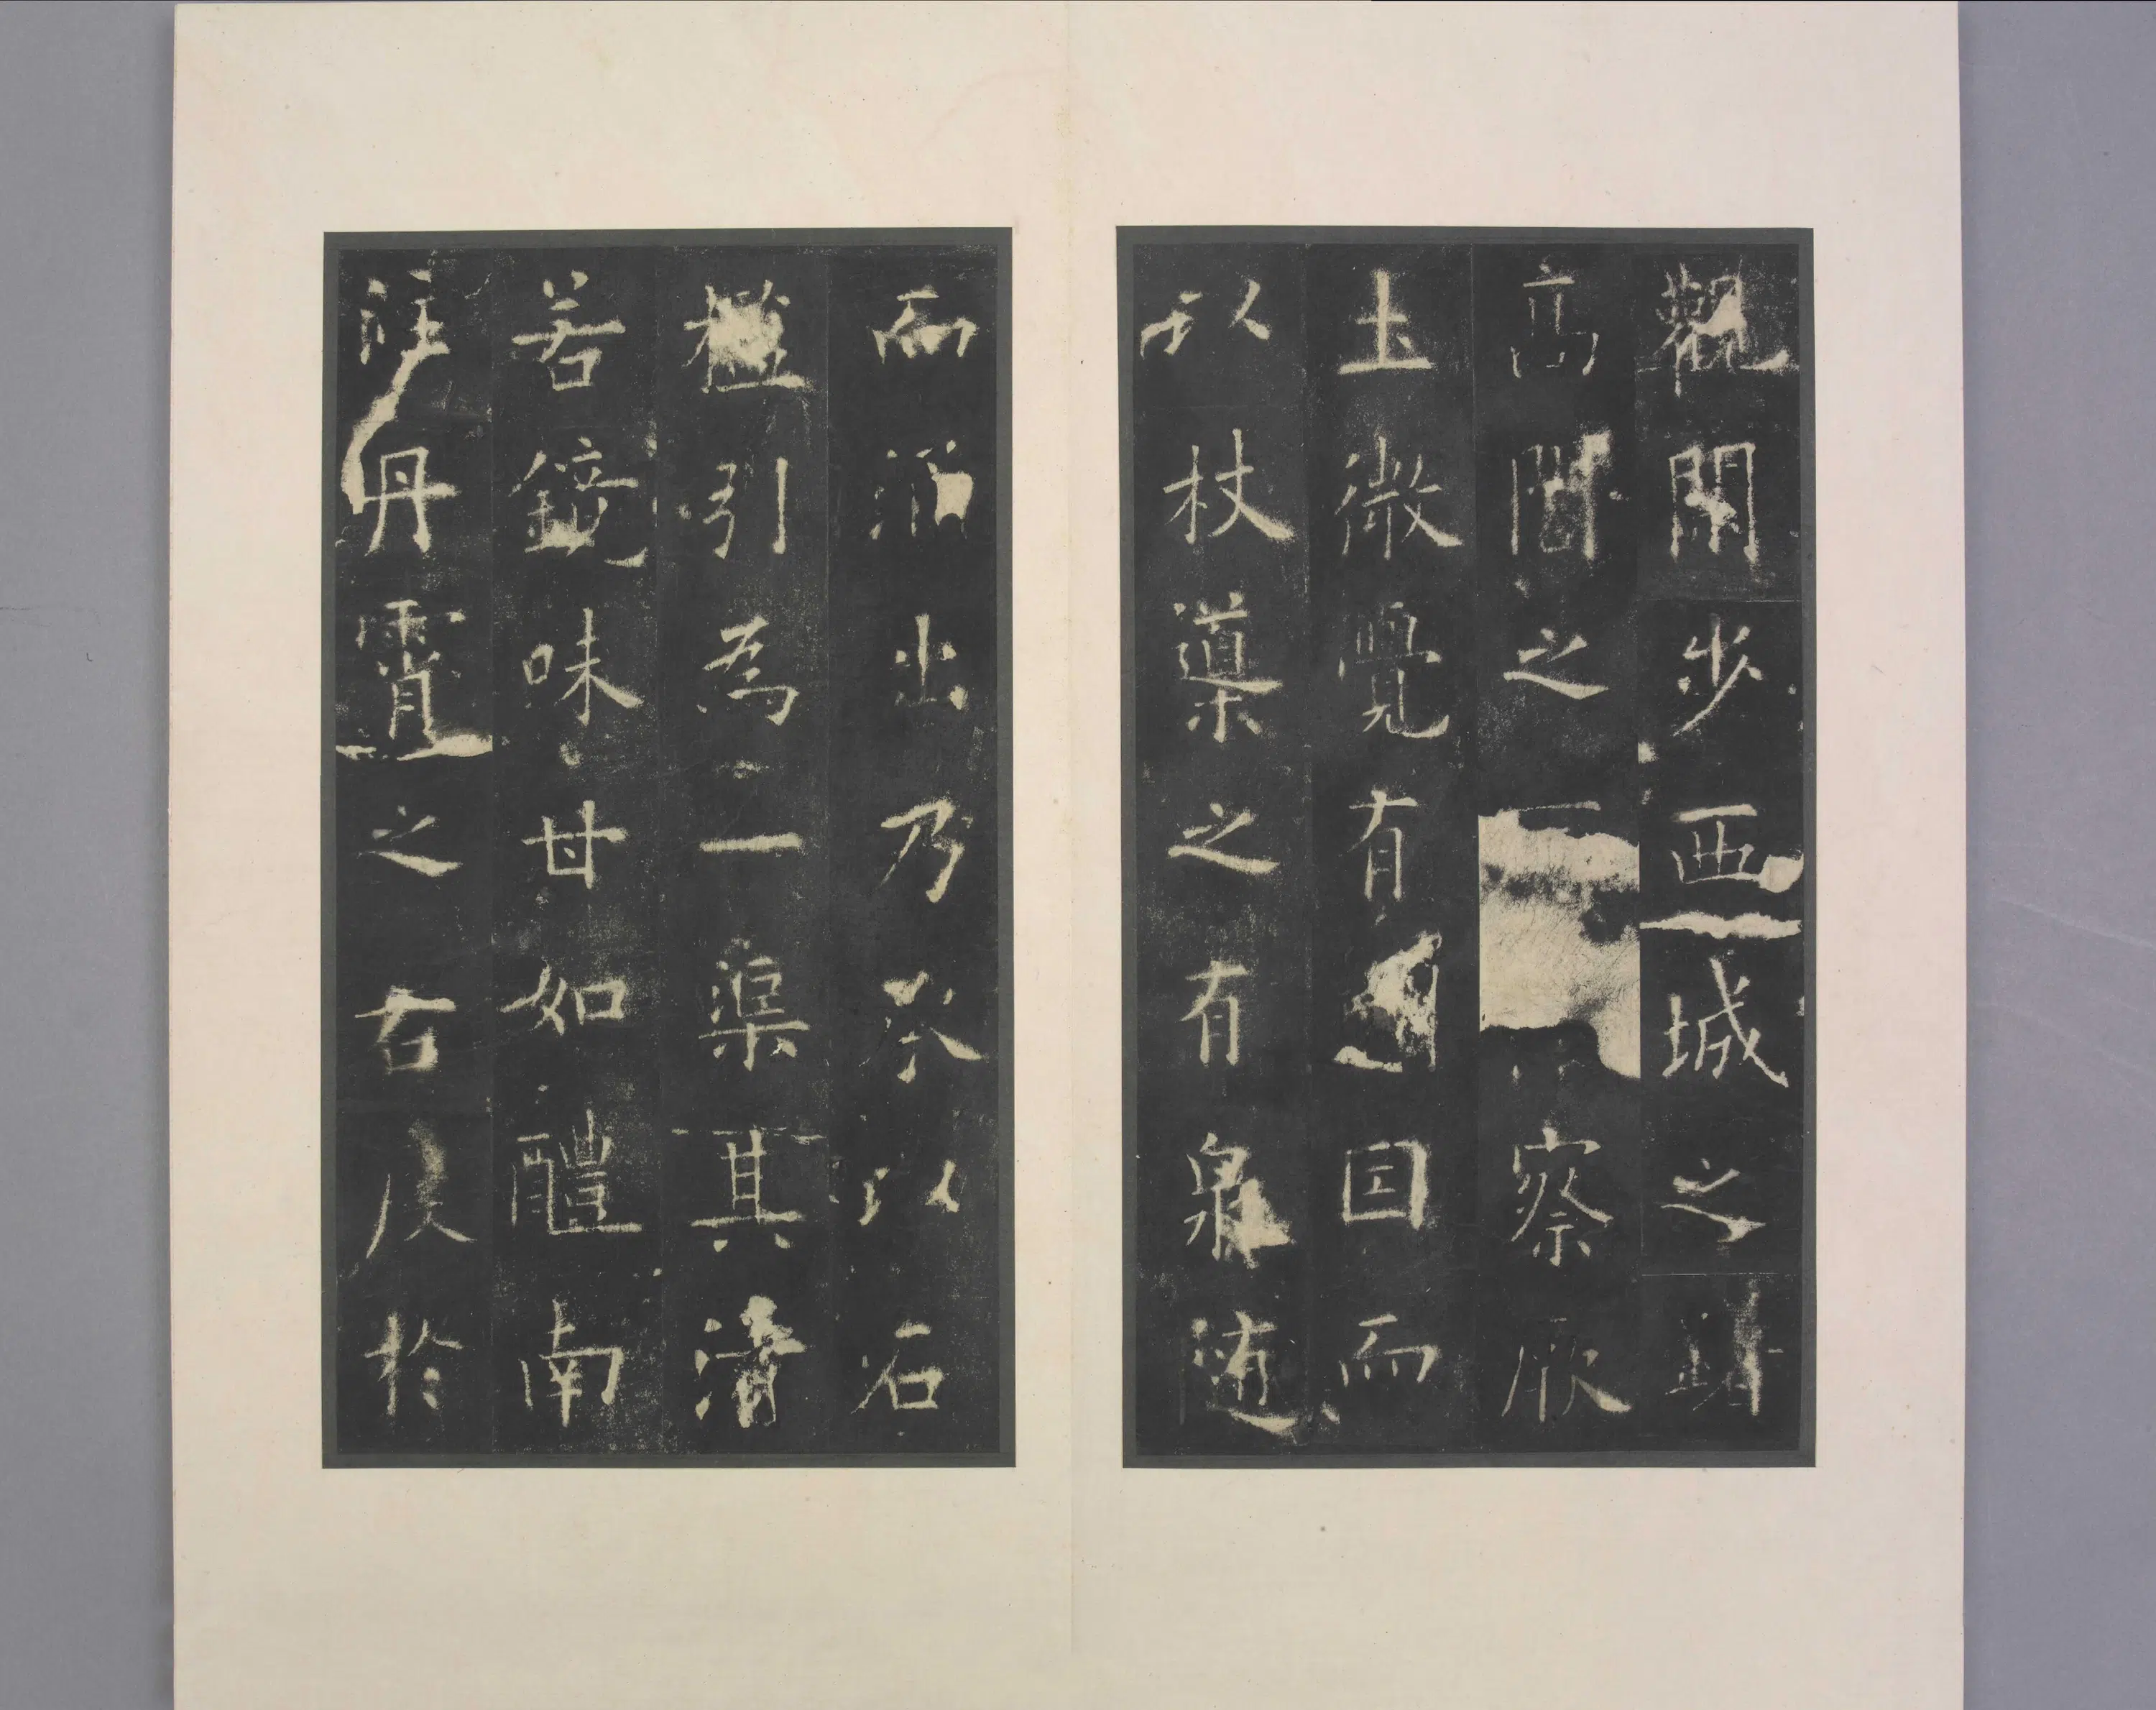 觀閑步西城之躇
高閣之察厥
土微覺有潤因而
以杖導之有泉隨
而涌出乃承以石
檻引為一渠其清
若鏡味甘如醴南
注丹霄之右度於